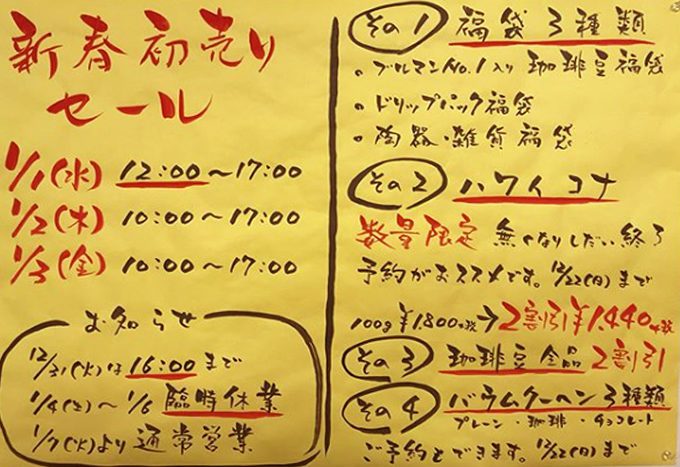 新春初売り
セール
1/1(水) 12:00〜17:00
1/2(木) 10:00〜17:00
1/3(金) 10:00〜17:00
お知らせ
12/31(火)は16:00まで
1/4(土)〜1/6 臨時休業
1/7(火)より通常営業
その1 福袋3種類
・ブルマンNo.1入り 珈琲豆福袋
・ドリップパック福袋
・陶器・雑貨福袋
その2 ハワイコナ
数量限定 無くなりしだい終了
予約がおススメです。12/22(日)まで
100g ¥1,800+税→2割引¥1,440+税
その3 珈琲豆全品2割引
その4 バウムクーヘン3種類
プレーン・珈琲・チョコレート
ご予約もできます。12/22(日)まで